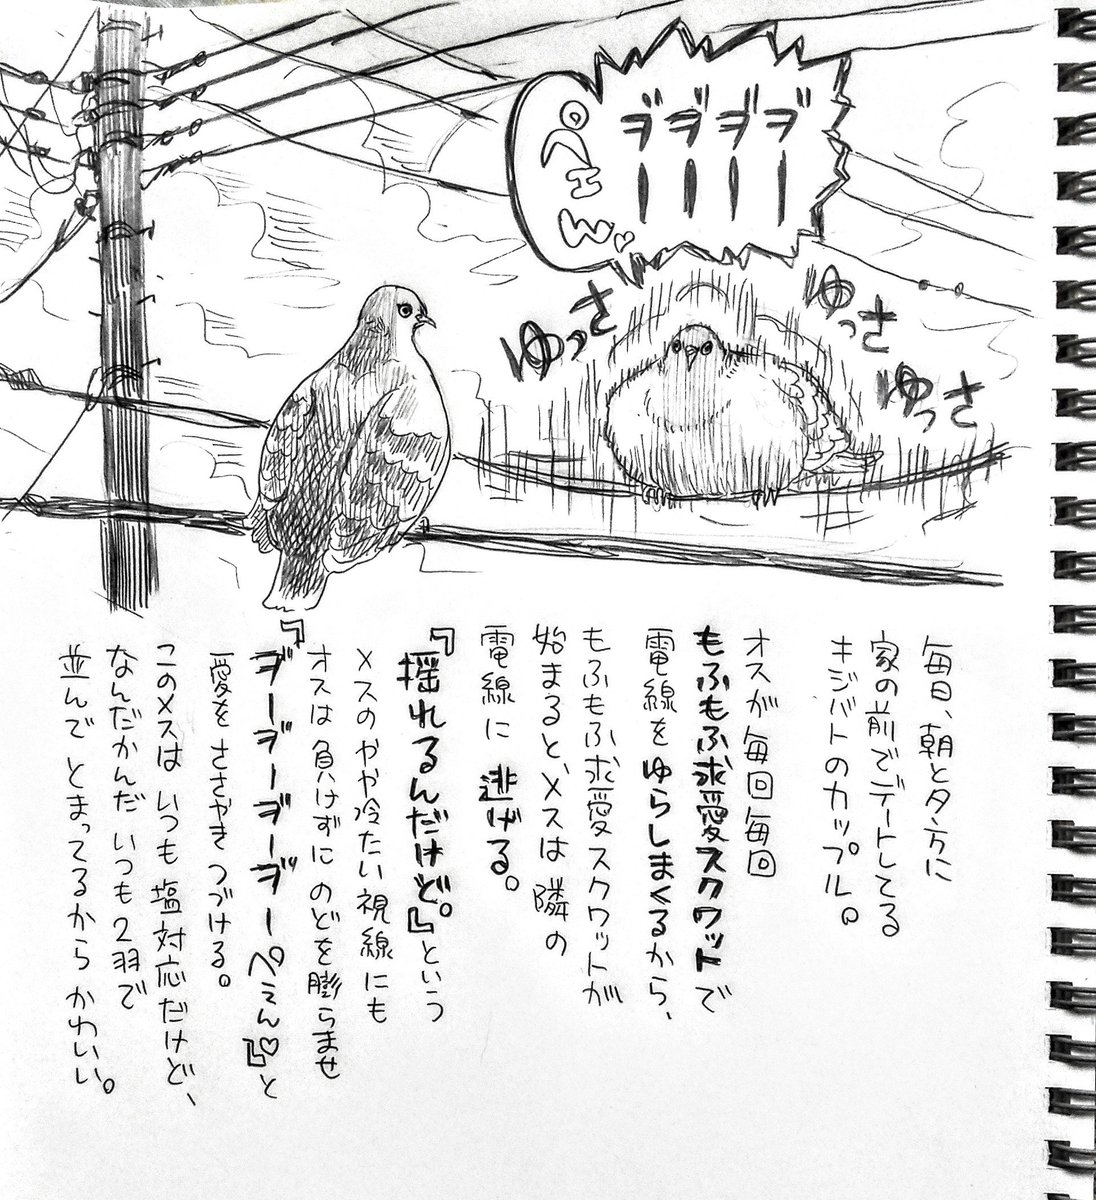 ヺーヺーヺーヺー
ペェん♡
ゆっさ
ゆっさ
ゆっさ
毎日、朝と夕方に
家の前でデートしてる
キジバトのカップル。
オスが毎回毎回
もふもふ求愛スクワットで
電線をゆらしまくるから、
もふもふ求愛スクワットが
始まると、メスは隣の
電線に逃げる。
『揺れるんだけど。』という
メスのやや冷たい視線にも
オスは負けずにのどを膨らませ
『ヺーヺーヺーヺーペぇん♡』と
愛をささやきつづける。
このメスはいつも塩対応だけど、
なんだかんだいつも2羽で
並んでとまってるからかわいい。